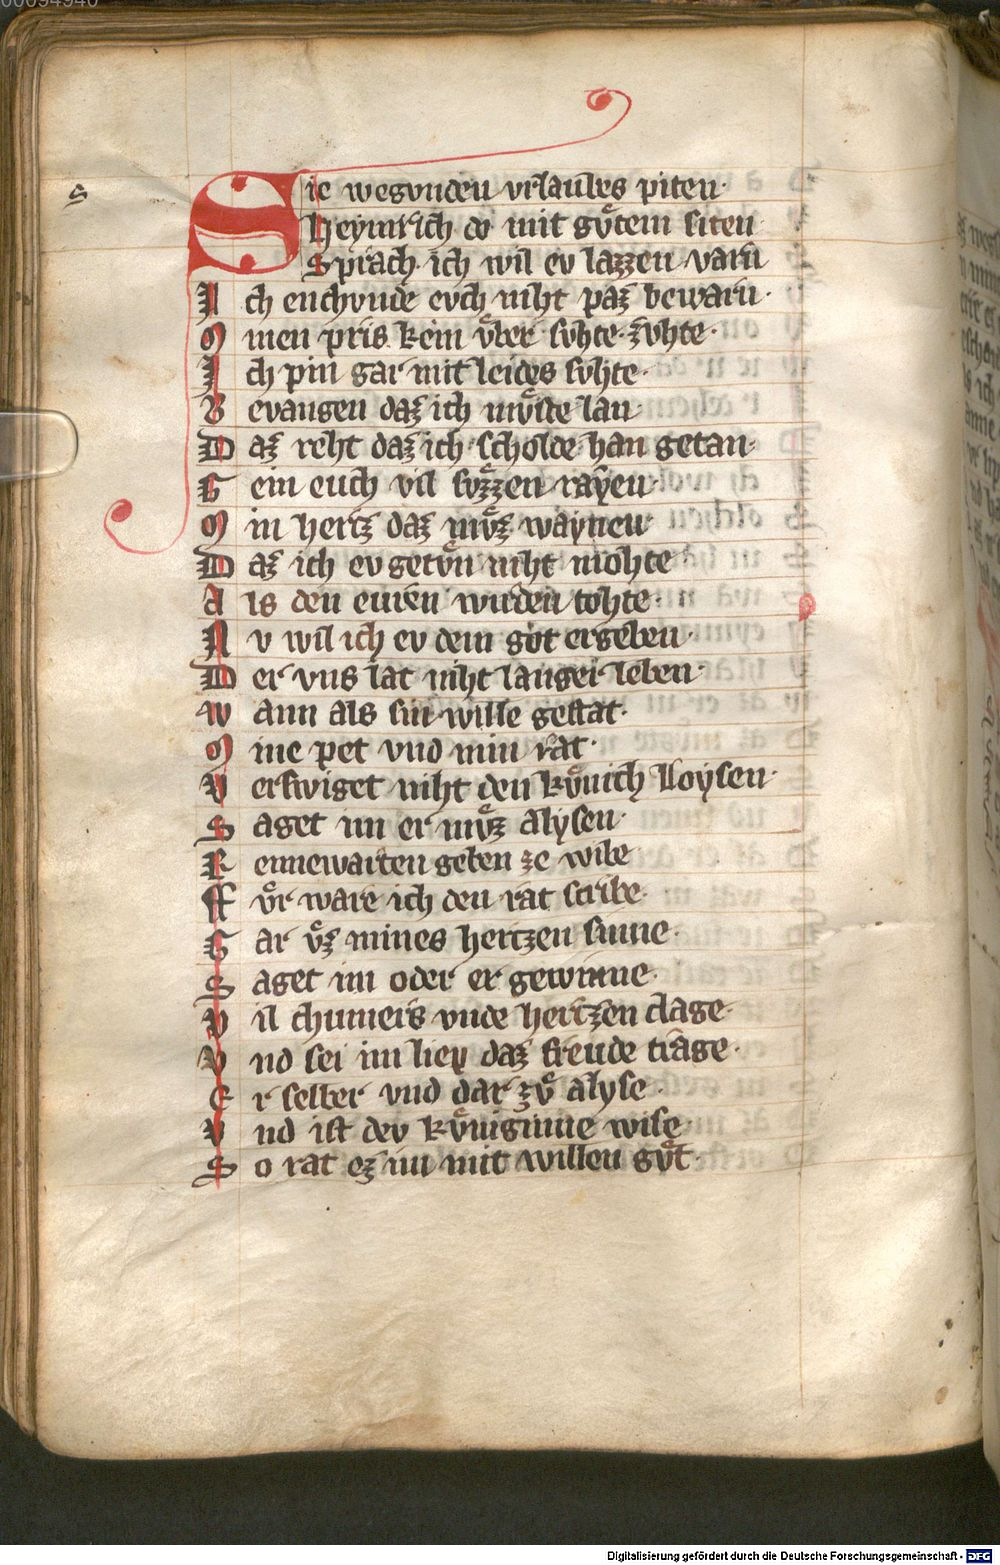 00094940
s
Sie wegunden vrlaubes piten·
Heymrich do mit gůtem siten
Sprach· ich wil ev lazzen varn
Ich enchvnde evch niht paz bewarn·
Mein pris kein vber svhte zvhte·
Ich pin gar mit leides svhte·
Bevangen daz ich mvste lan
Daz reht daz ich scholde han getan·
Gein euch vil svzzen rayen·
Min hertz daz mvz waynen
Daz ich ev getvn niht mohte
Als den euren wirden tohte·
Nv wil ich ev dem got ergeben·
Der vns lat niht langer leben·
Wann als sin wille gestat·
Mine pet vnd min rat·
Verswiget niht den kvnich Loysen·
Saget im er mvz Alysen·
Rennewarten geben ze wibe
Fvr ware ich den rat scribe·
Gar vz mines hertzen sinne·
Saget im oder er gewinne·
Vil chumers vnde hertzen clage·
Vnd sei im liep daz freude trage·
Er selber vnd dar zv alyse·
Vnd ist dev kvniginne wise
So rat ez im mit willen gvt·
Digitalisierung gefördert durch die Deutsche Forschungsgemeinschaft - DFG